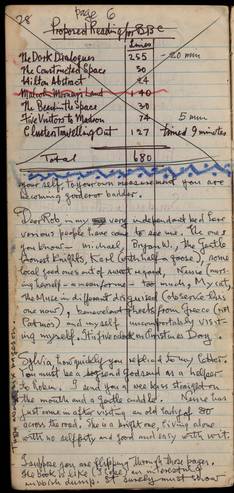 28 page 6
Proposed Reading for BBC
Lines
The Dark Dialogues 255 - 20 min
The Constructed Space 30
Hilton Abstract 44
Malcolm Mooney's Land 140
The Beast in the Space 30
Five Visitors to Madron 74 5 min
Clusters Travelling Out 127 timed 9 minutes
Total 680
your self. To your own measurement you are
becoming good or badder.
Dear Rob, in my very independent bed here
various people have come to see me. The ones
you know - Michael, Bryan W., the Gentle
Honest Knights, Karl (with half a goose), some
local good ones out of sweet regard, Nessie (nurs-
ing herself - a near form - too much, My cat,
the Muse in different disguises
now), benevolent from Greece (not
Patmos) and myself uncomfortably visit-
ing myself. It is five o'clock on Christmas Day.
Sylvia, how quickly you replied to my letter.
You must be a good and as a helper
to Robin. I send you a wee kiss straight on
the mouth and a gentle cuddle. Nessie has
just come in after visiting an old lady of 80
across the road. She is a bright one, living alone
with no self pity and good and easy with wit.
I suppose you are flipping through these pages.
The book is like
rubbish dump. It surely must show